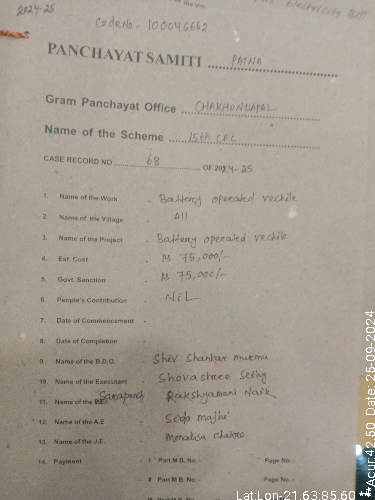 2024-25
Electricity Bill
Code No - 100046662
PANCHAYAT SAMITI PATNA
Gram Panchayat Office CHAKHUNDAPAL
Name of the Scheme 15th CFC
CASE RECORD NO. 68 OF 2024-25
1. Name of the Work - Battery operated vechile
2. Name of the Village - All
3. Name of the Project - Battery operated vechile
4. Est. Cost - Rs 75,000/-
5. Govt. Sanction - Rs 75,000/-
6. People's Contribution - NIL
7. Date of Commencement -
8. Date of Completion -
9. Name of the B.D.O. - Shiv Shankar murmu
10. Name of the Executant - Shovashree Sethy
11. Name of the Sarapanch Rakshyamani Naik
12. Name of the A.E - Seda majhi
13. Name of the J.E. - Monalisa
14. Payment - I Part M.B. No. - Page No. -
II Part M.B. No. - Page No. -
Part M.B. No.
Lat:Lon-21.63:85.60
**Acur:42.50 Date: 25-09-2024